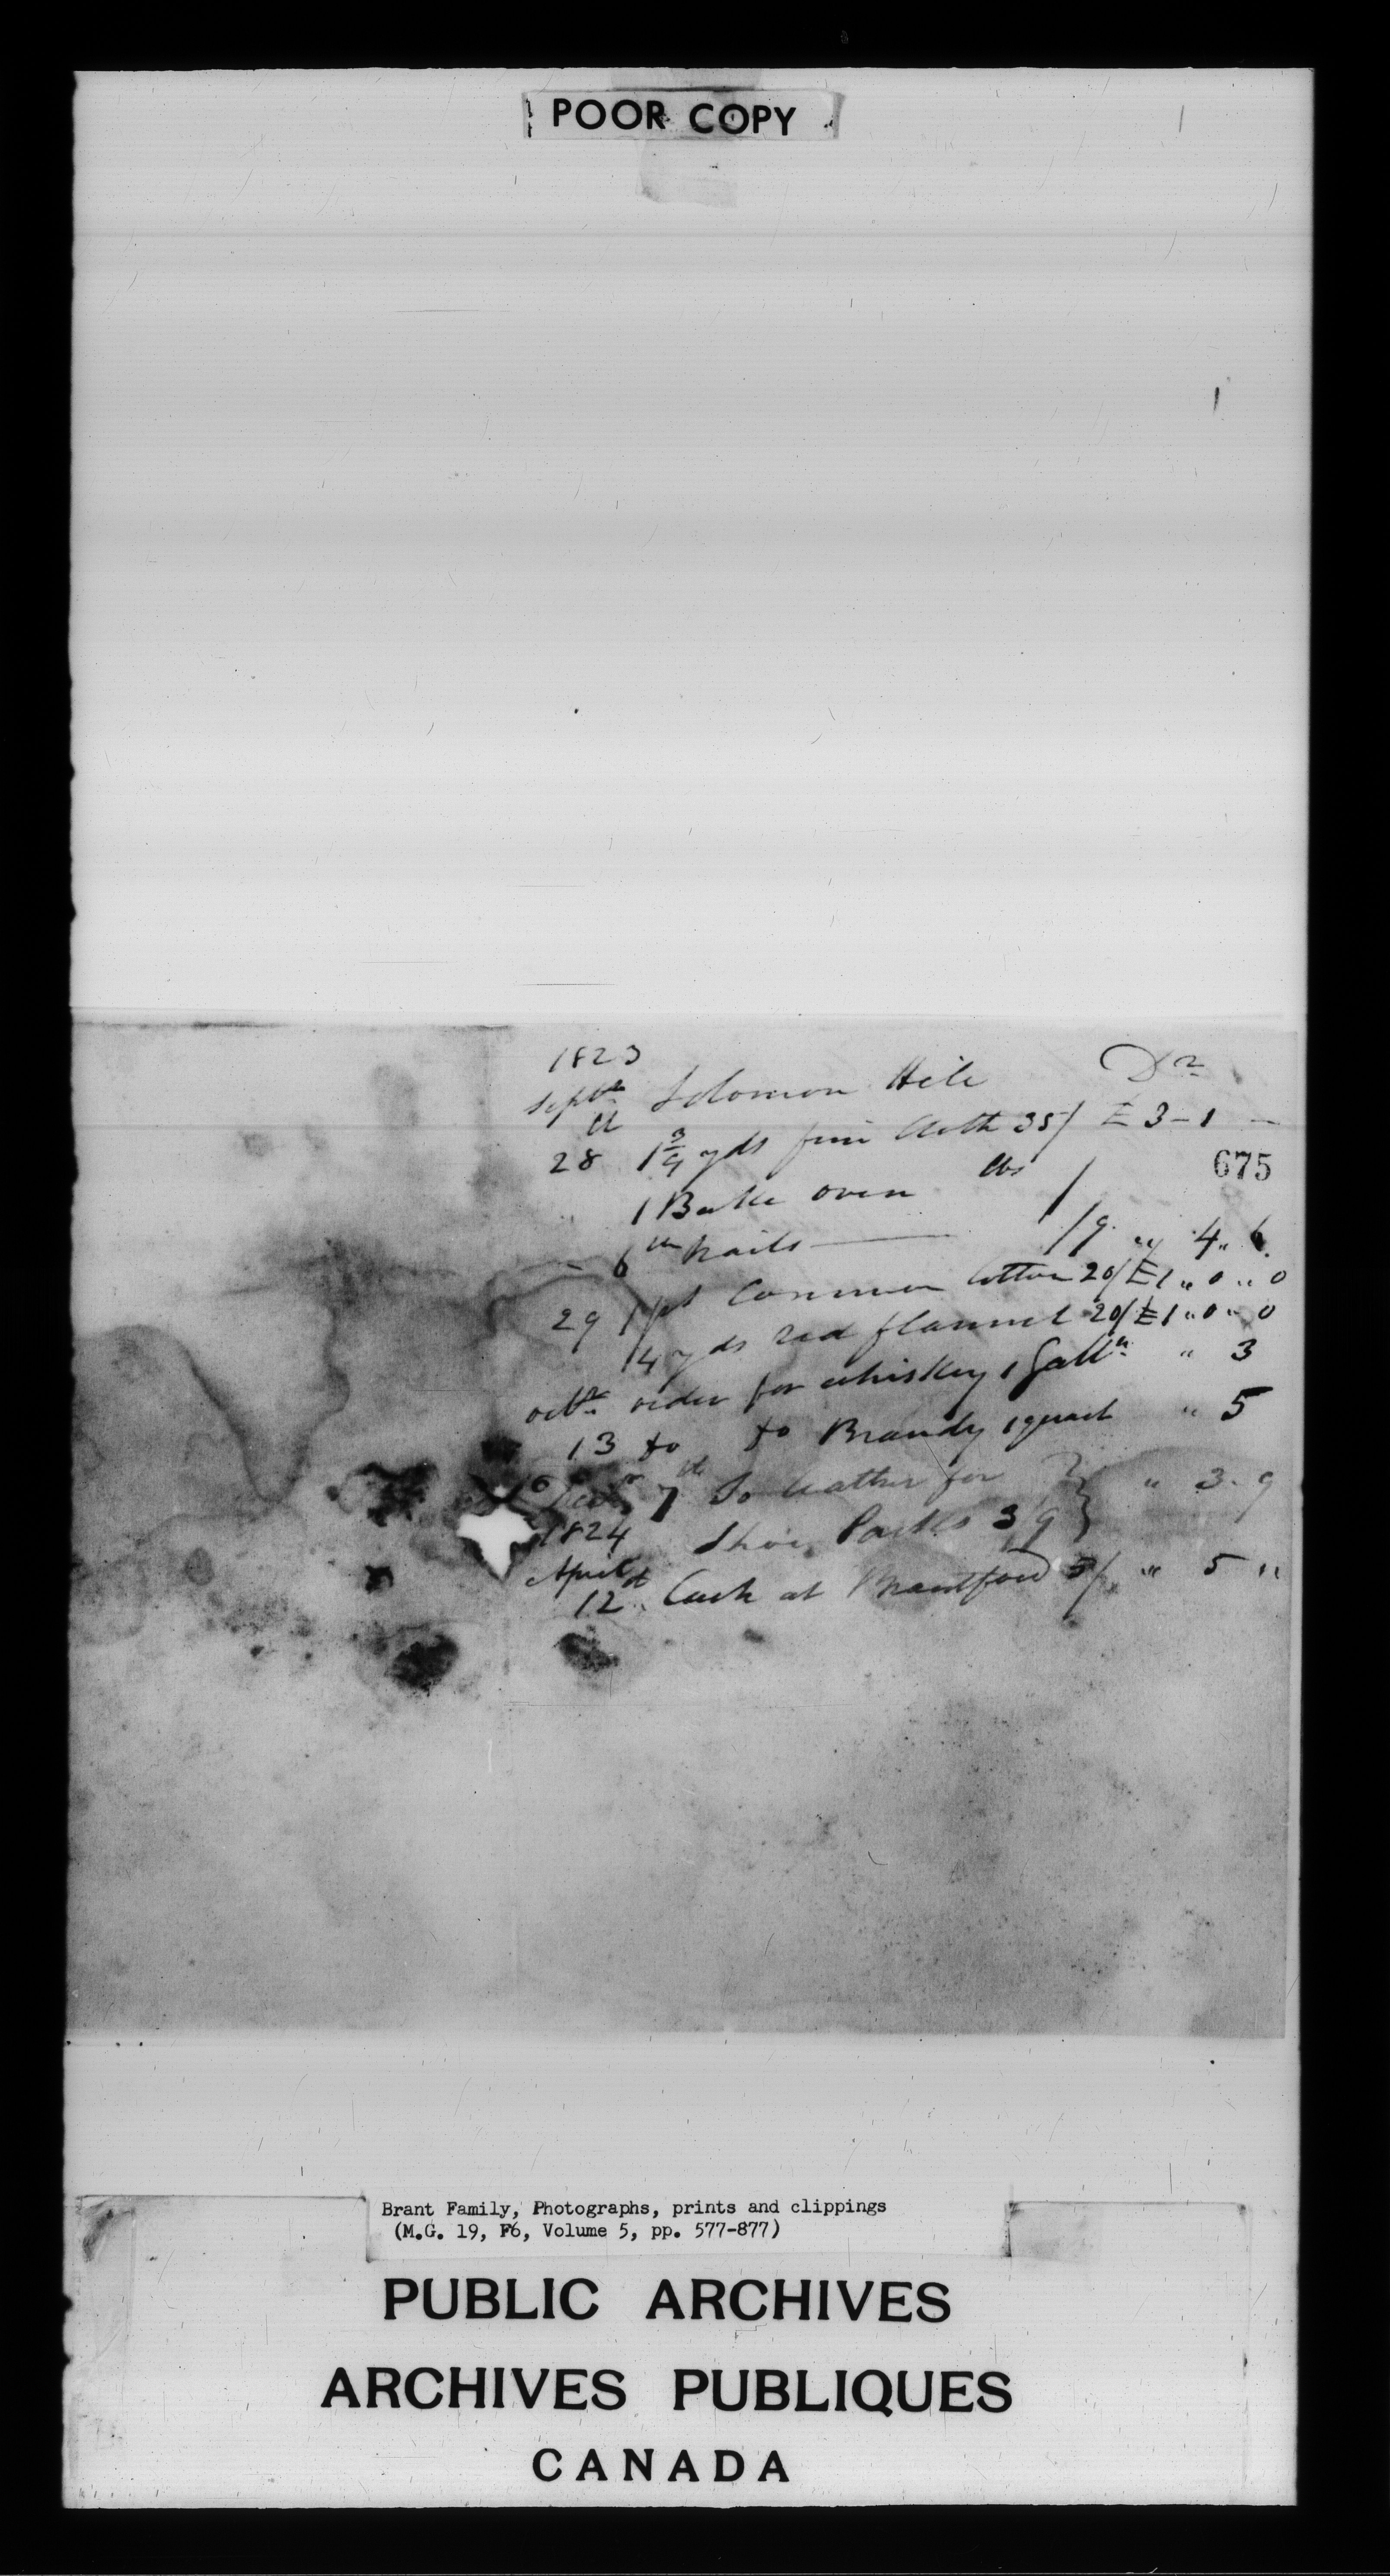 POOR COPY
1823
Septr Solomon Hill Dr
28 1 3/4 yds fine Cloth 35/ £ 3 - 1 -
675
1 Bake oven lbs /
6 lb nails /9 " 4 " 6
29 1 ps Common Cotton 20/ £1 " 0 " 0
4 yds red flannel 20/ £1 " 0 " 0
octr order for whiskey 1 Galln " 3
13 do do Brandy 1 quart " 5
Decr 7th To leather for } " 3 - 9
1824 Shoe Packs 3/9 }
April
12 Cash at Brantford 5/ " 5 "
Brant Family, Photographs, prints and clippings
(M.G. 19, F6, Volume 5, pp. 577-877)
PUBLIC ARCHIVES
ARCHIVES PUBLIQUES
CANADA